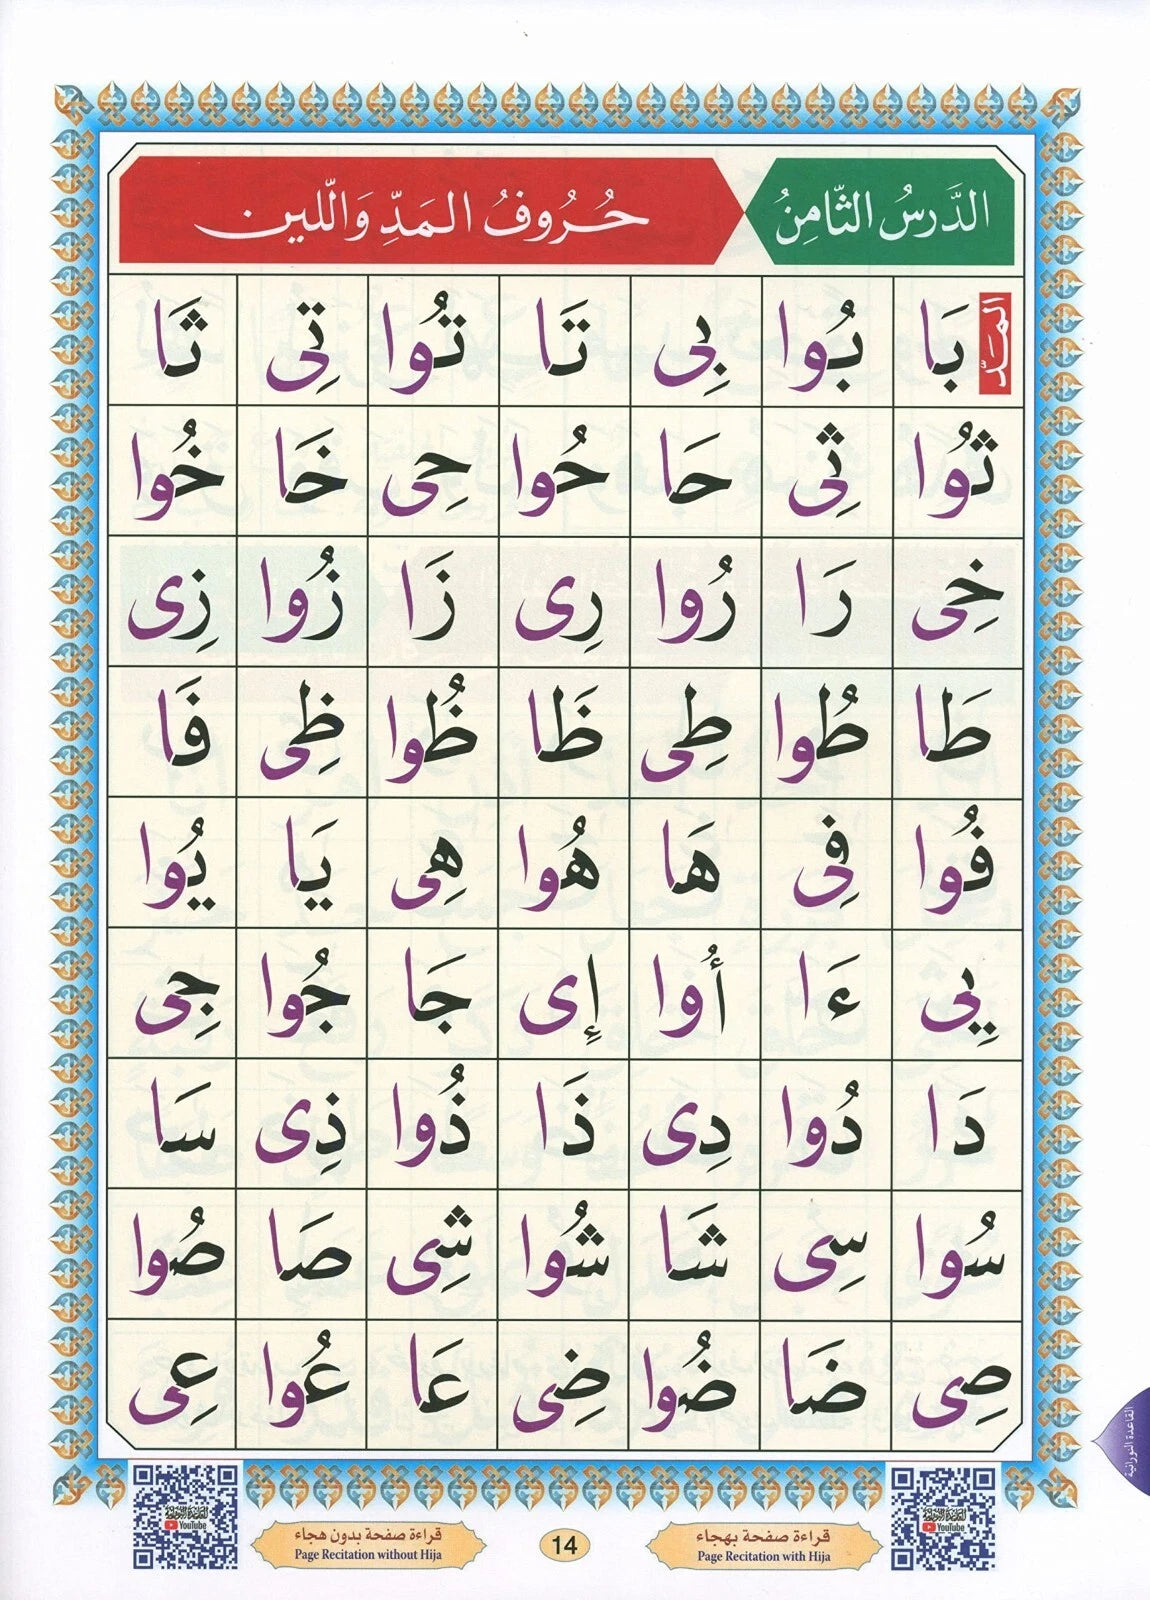 الدَّرسُ الثَّامِنُ حُرُوفُ المَدِّ وَاللّين
المَدّ
بَا بُوا بِى تَا تُوا تِى ثَا
ثُوا ثِى حَا حُوا حِى خَا خُوا
خِى رَا رُوا رِى زَا زُوا زِى
طَا طُوا طِى ظَا ظُوا ظِى فَا
فُوا فِى هَا هُوا هِى يَا يُوا
يِي ءَا أُوا إِى جَا جُوا جِى
دَا دُوا دِى ذَا ذُوا ذِى سَا
سُوا سِى شَا شُوا شِى صَا صُوا
صِى ضَا ضُوا ضِى عَا عُوا عِى
القاعدة النورانية
YouTube
YouTube
قراءة صفحة بهجاء
Page Recitation with Hija
14
قراءة صفحة بدون هجاء
Page Recitation without Hija